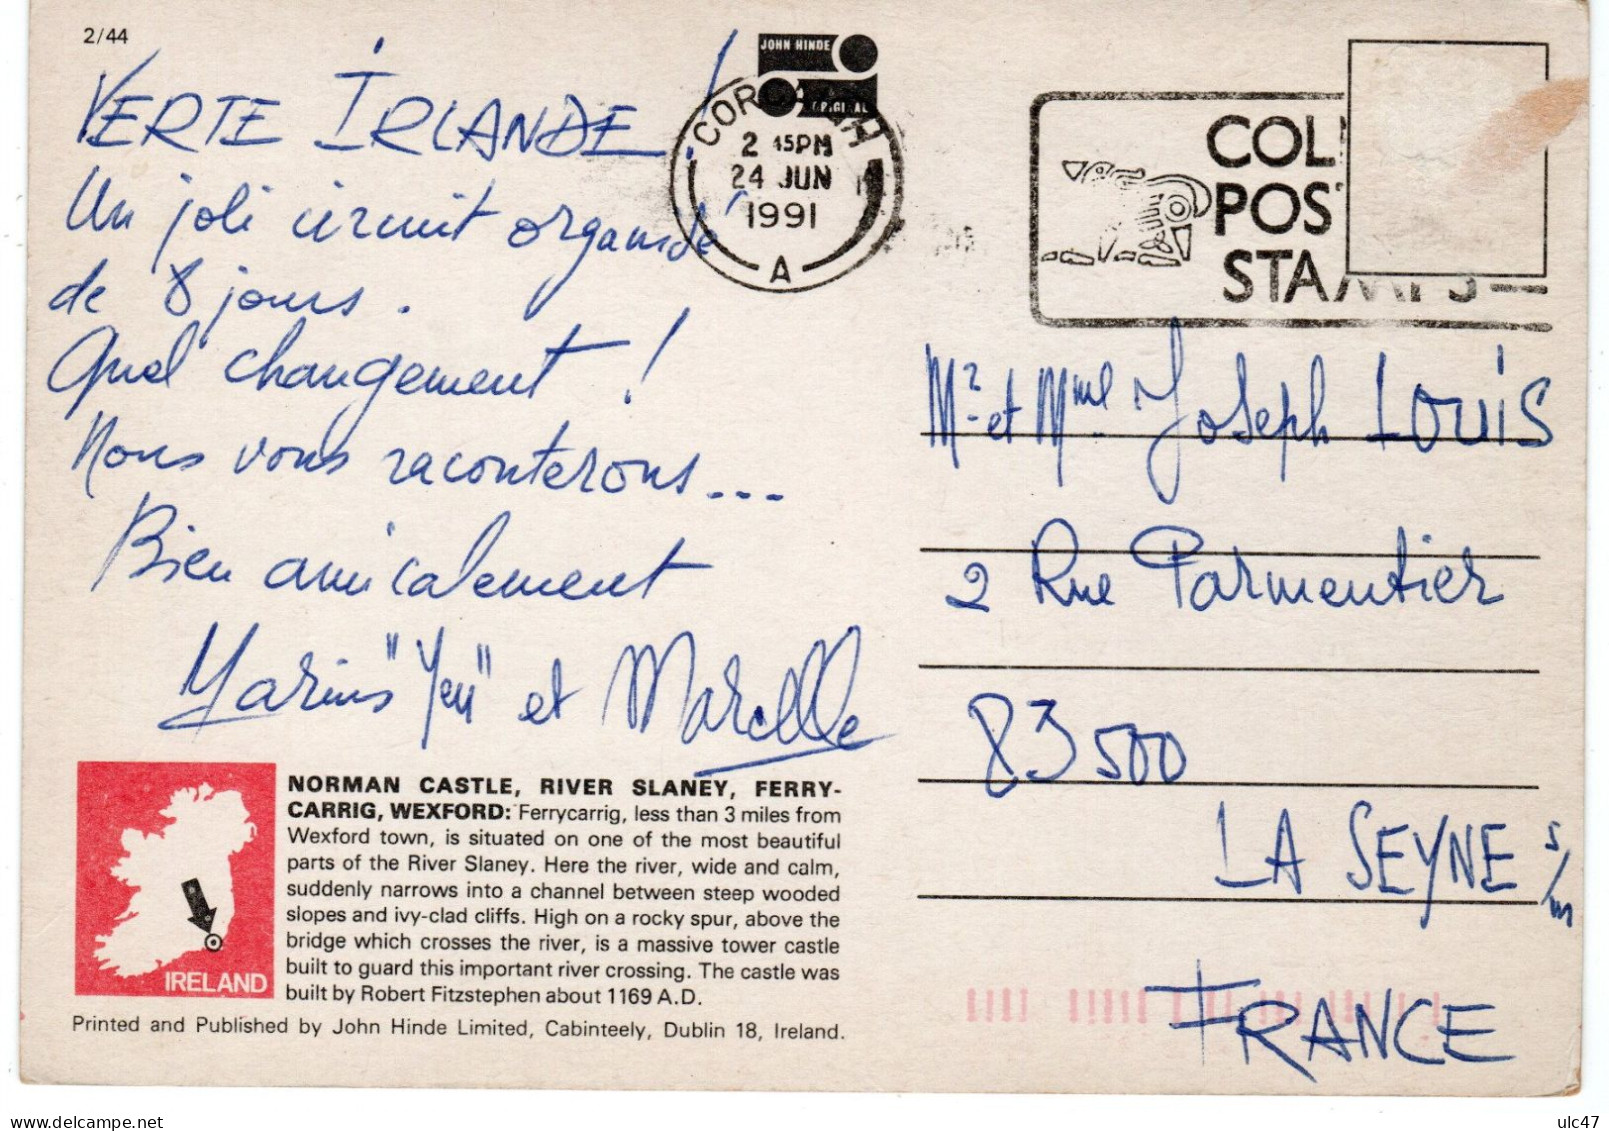 2/44
VERTE IRLANDE !
Un joli circuit organisé
de 8 jours.
Quel changement !
Nous vous raconterons...
Bien amicalement
Marius "Yeu" et Marcelle
NORMAN CASTLE, RIVER SLANEY, FERRY-
CARRIG, WEXFORD: Ferrycarrig, less than 3 miles from
Wexford town, is situated on one of the most beautiful
parts of the River Slaney. Here the river, wide and calm,
suddenly narrows into a channel between steep wooded
slopes and ivy-clad cliffs. High on a rocky spur, above the
bridge which crosses the river, is a massive tower castle
built to guard this important river crossing. The castle was
built by Robert Fitzstephen about 1169 A.D.
IRELAND
Printed and Published by John Hinde Limited, Cabinteely, Dublin 18, Ireland.
JOHN HINDE
ORIGINAL
COR
2 45PM
24 JUN
1991
A
COL
POS
STAMPS
Mr et Mme Joseph LOUIS
2 Rue Parmentier
83500
LA SEYNE s/m
FRANCE
ulc47